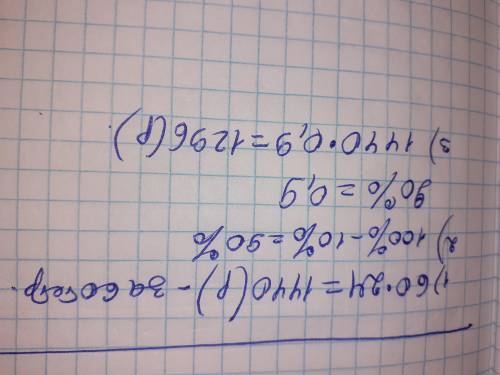 1) 60·24=1440(р)- за 60 тетр.
2) 100%-10%=90%
90%=0,9
3) 1440·0,9=1296(р).